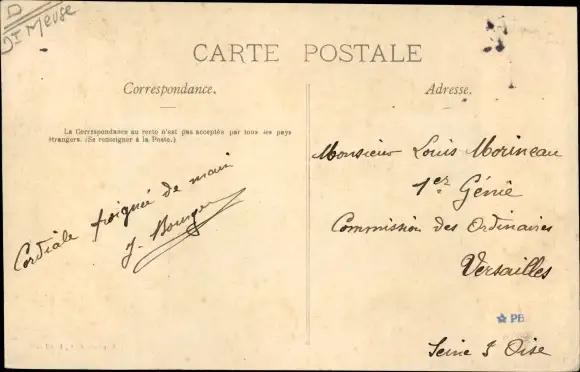 D
Dt Meuse
CARTE POSTALE
Correspondance.
Adresse.
La Correspondance au recto n'est pas acceptée par tous les pays
étrangers. (Se renseigner à la Poste.)
Cordiale poignée de main
J. Bourge
Monsieur Louis Morineau
1er Génie
Commission des Ordinaires
Versailles
PB
Seine & Oise